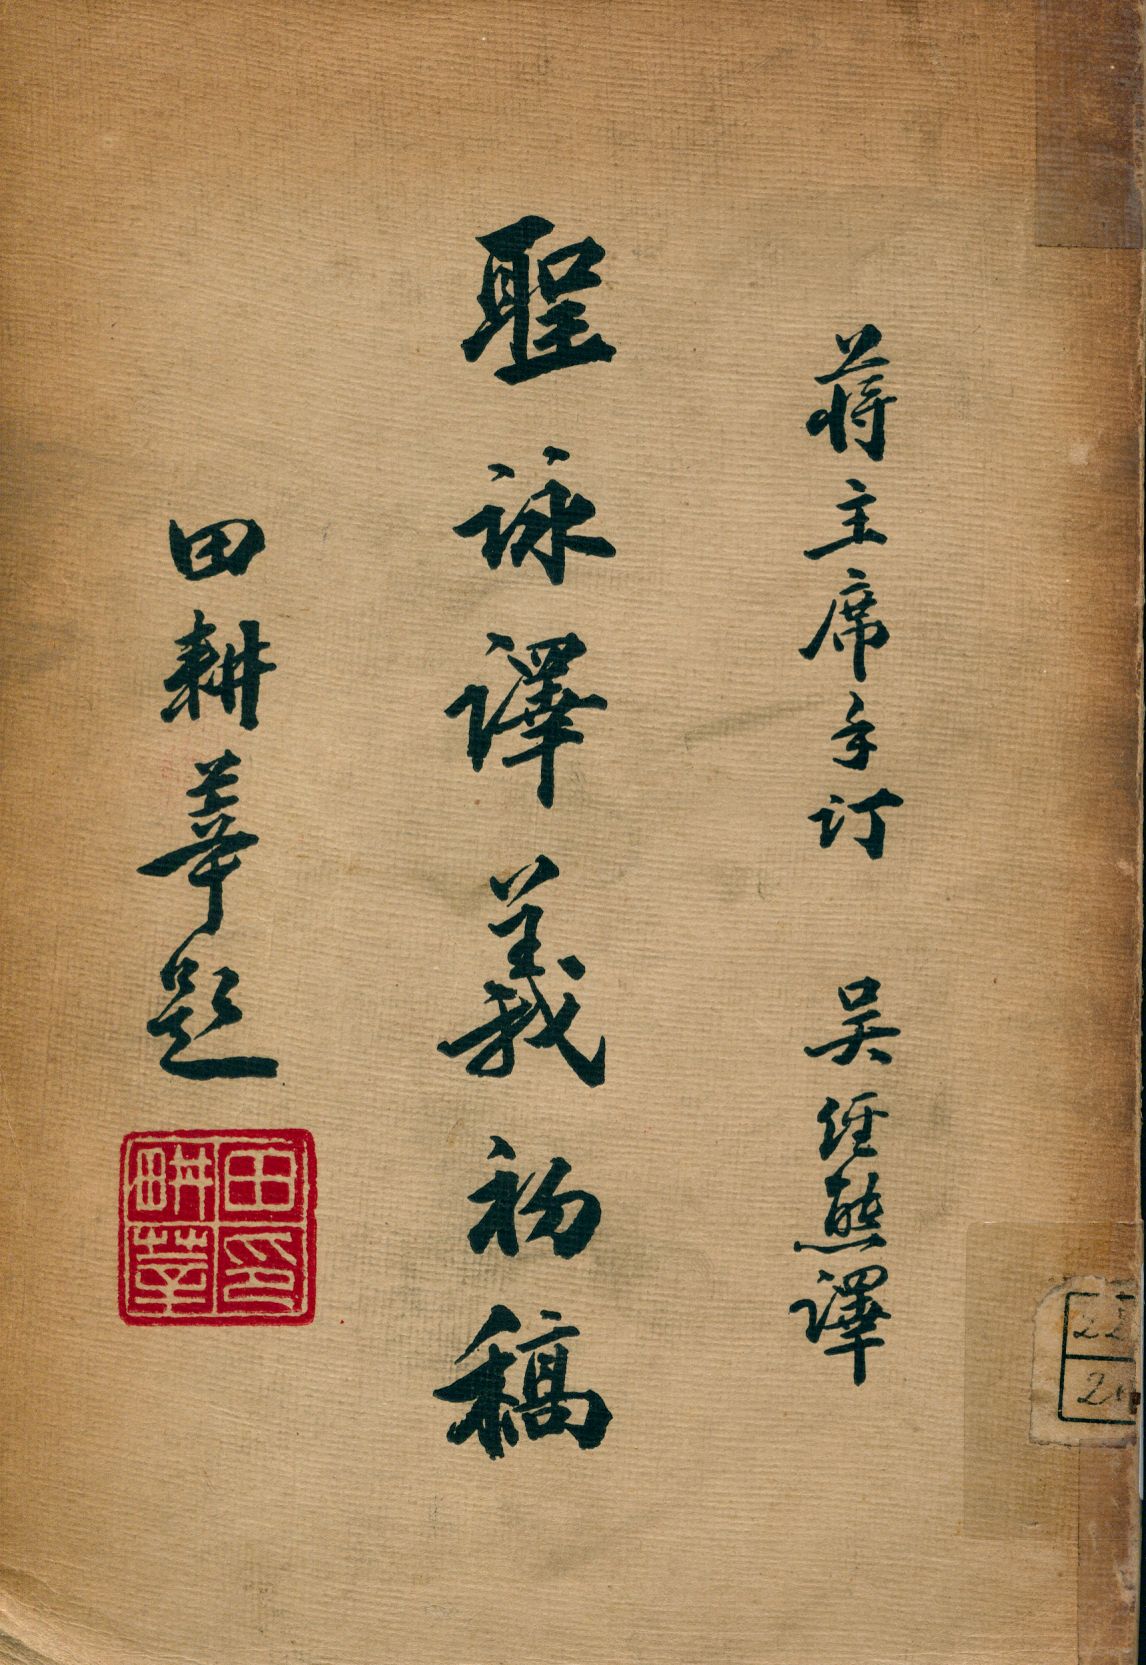 蔣主席手訂 吳經熊譯
聖詠譯義初稿
田耕莘題
田印耕莘
22
2